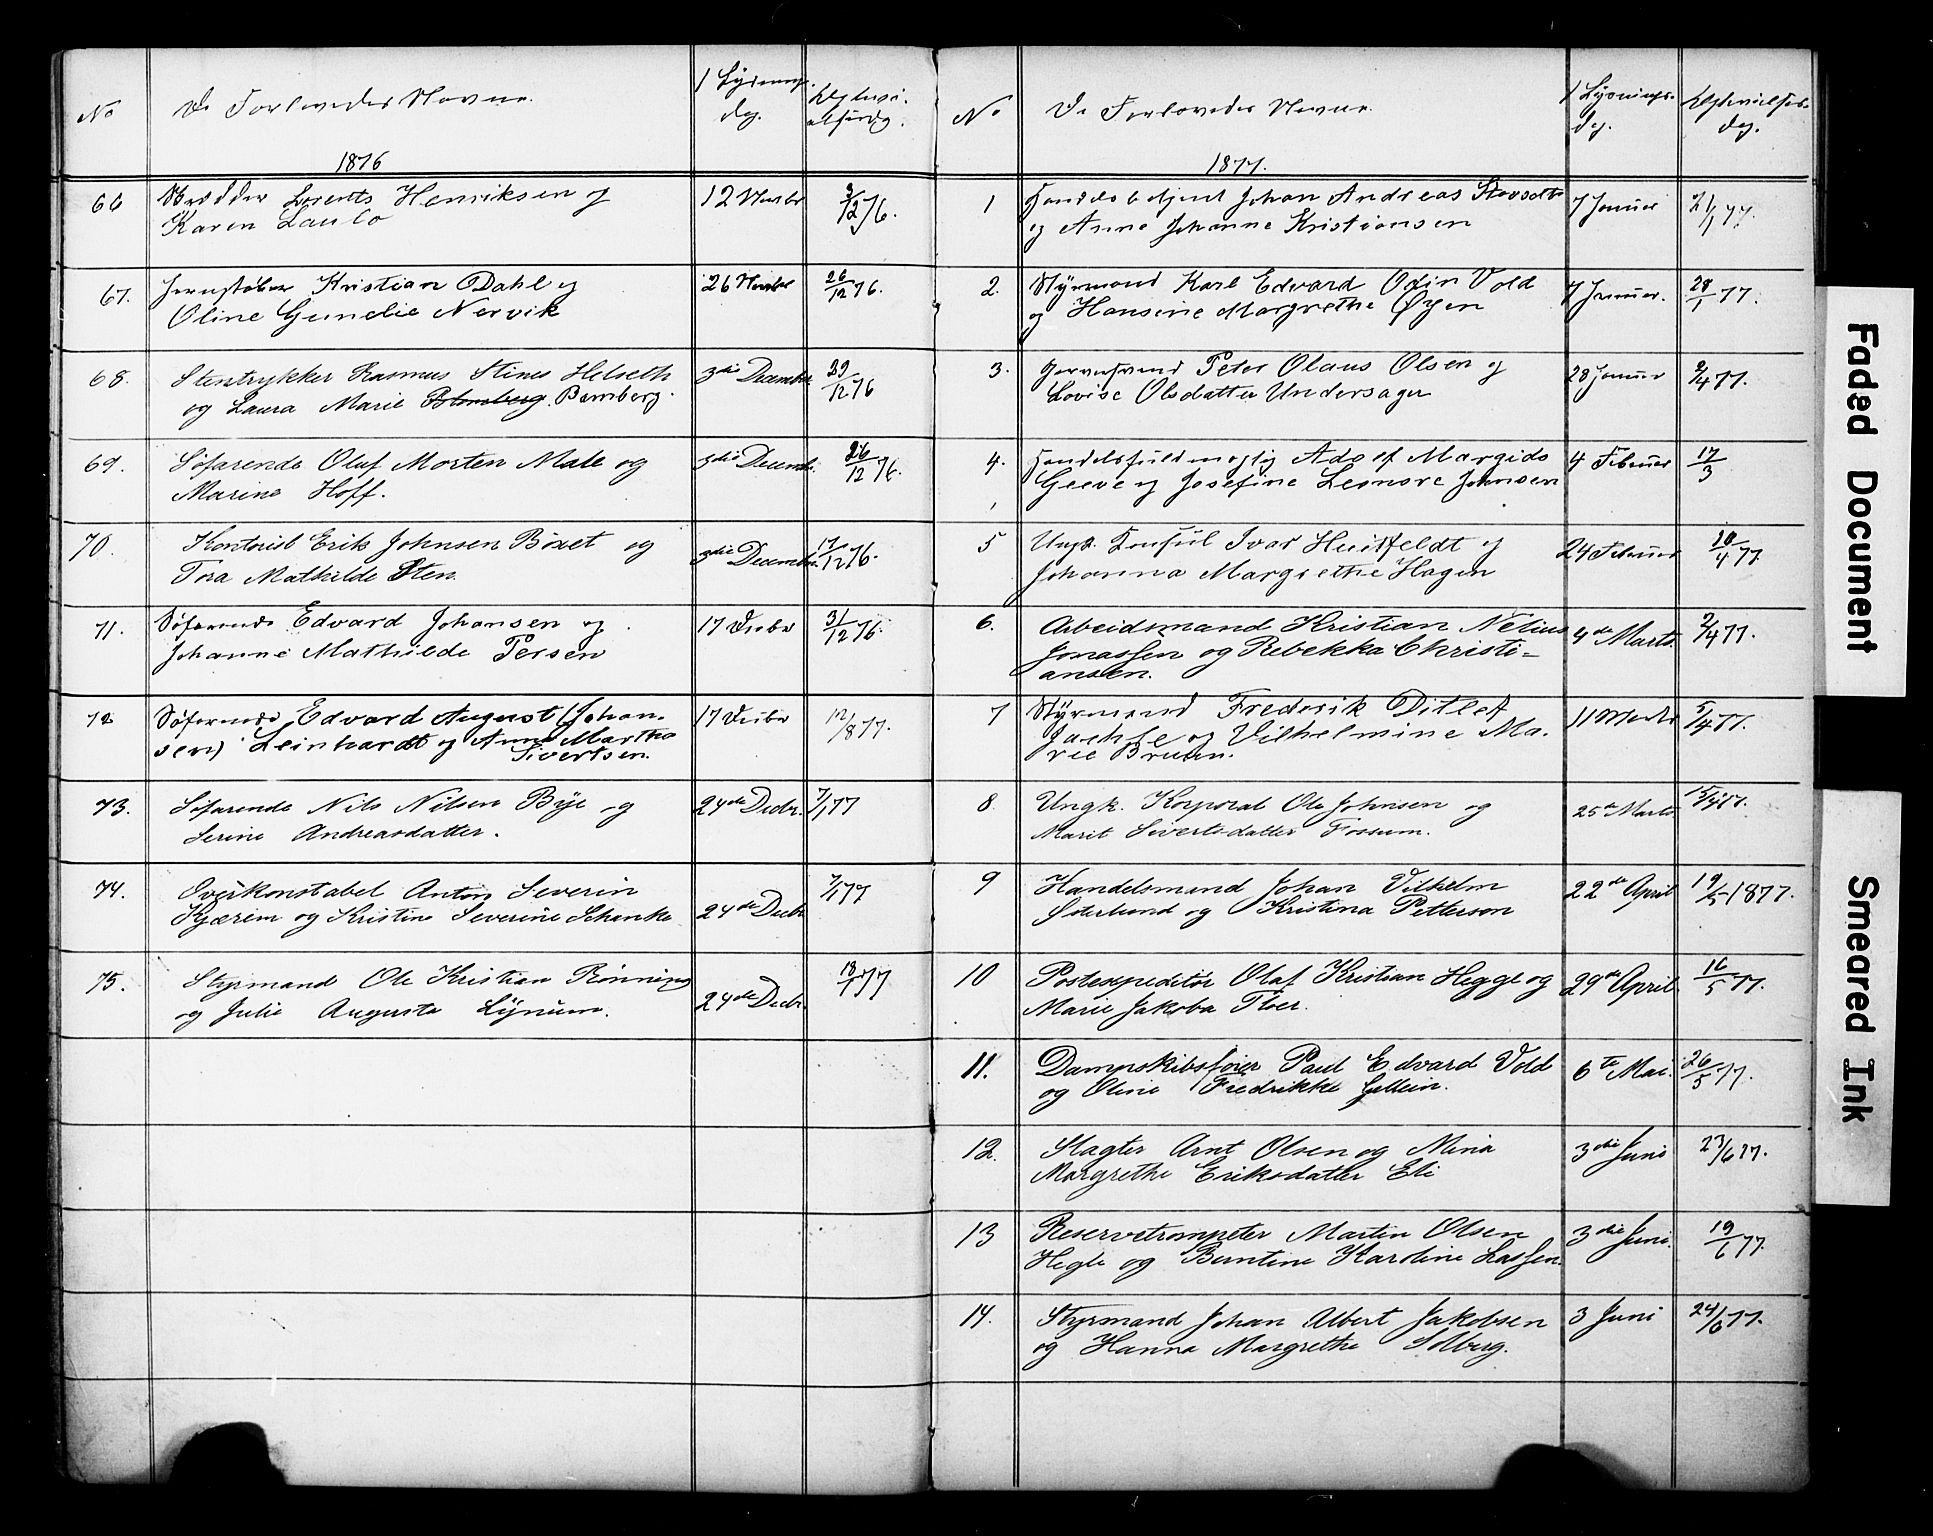 No
De Forlovedes Navne.
1 Lysnings-
dag.
1876
66
Lorents Henriksen og
Karen Laulo
12 Novbr
3/12 76.
67.
Jernstøber Kristian Dahl og
Oline Gunelie Nervik
26 Novbr
26/12 76.
68.
Stentrykker Rasmus Stines Helseth
og Laura Marie Bamberg.
3die December
29/12 76
69.
Søfarende Oluf Morten Male og
Marine Hoff.
3die Decemb.
26/12 76.
70.
Kontorist Erik Johnsen Boxet og
Tora Mathilde Sten.
3die Decembr.
17/12 76.
71.
Søfarende Edvard Johansen og
Johanne Mathilde Persen
17 Decbr
31/12 76.
72
Søfarende Edvard August (Johan-
sen) Leinhardt og Anne Martha
Sivertsen.
17 Decbr
12/8 77.
73.
Søfarende Nils Nilsen Bye og
Serine Andreasdatter.
24de Decbr.
7/1 77
74.
Overkonstabel Anton Severin
Kjærem og Kristine Severine Schanke
24de Decbr
7/1 77
75.
Styrmand Ole Kristian Rønning
og Julie Augusta Lynum.
24de Decbr.
18/1 77
No
De Forlovedes Navne.
1 Lysnings-
dag.
Vgtevielses-
dag.
1877.
1
Handelsbetjent Johan Andreas
og Anne Johanne Kristiansen
7 Januar
21/1 77.
2.
Styrmand Karl Edvard Odin Vold
og Hansine Margrethe Øyen
7 Januar.
28/1 77.
3.
Peter Olaus Olsen og
Lovise Olsdatter Undersager
28 Januar
2/4 77.
4.
Handelsfuldmægtig Adolf Margido
Greeve og Josefine Leonore Johnsen
4 Februar
17/3
5
Ungk. Konsul Ivar Huitfeldt og
Johanna Margrethe Hagen
24 Februar
10/4 77
6.
Arbeidsmand Kristian Nelius
Jonassen og Rebekka Christi=
ansen.
4de Marts.
2/4 77.
7
Styrmand Frederik Ditlef
og Vilhelmine Ma-
rie Bruun.
11 Marts
5/4 77.
8.
Ungk. Korporal Ole Johnsen og
Marit Sivertsdatter Fossum.
25de Marts
15/4 77.
9
Handelsmand Johan Vilhelm
Østerlund og Kristina Petterson
22de April
19/5 1877.
10
Postexpeditør Olaf Kristian Hegge og
Marie Jakoba Floer.
29de April
16/5 77.
11.
Dampskibsfører Paul Edvard Vold
og Oline Fredrikke Gellein.
6te Mai.
26/5 77.
12.
Slagter Arnt Olsen og Mina
Margrethe Eriksdatter Eli
3die Juni
23/6 77.
13
Reservetrompeter Martin Olsen
Hegle og Berntine Karoline Lassen.
3die Juni.
19/6 77.
14.
Styrmand Johan Albert Jakobsen
og Hanna Margrethe Solberg.
3 Juni
24/6 77.
Faded Document
Smeared Ink